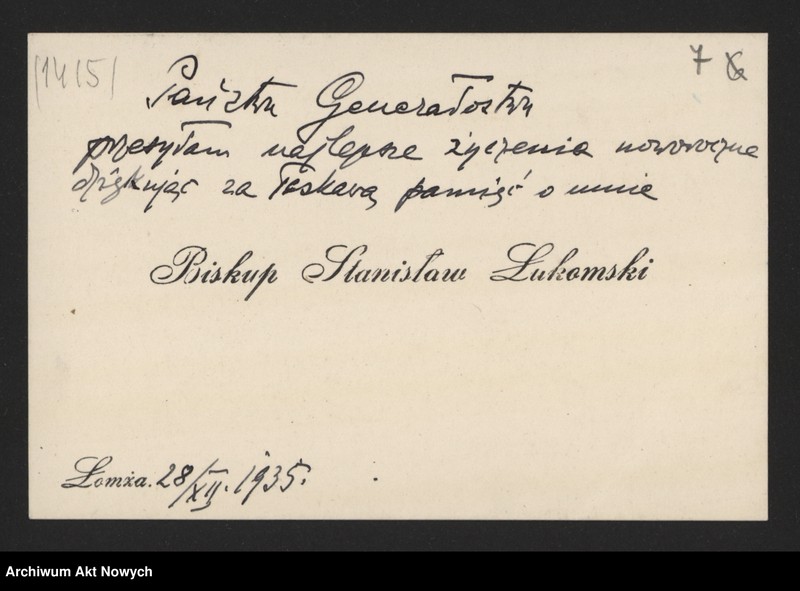 (1415)
7
Państwu Generałostwu
przesyłam najlepsze życzenia noworoczne
dziękując za łaskawą pamięć o mnie
Biskup Stanisław Łukomski
Łomża. 28/XII. 1935.
Archiwum Akt Nowych